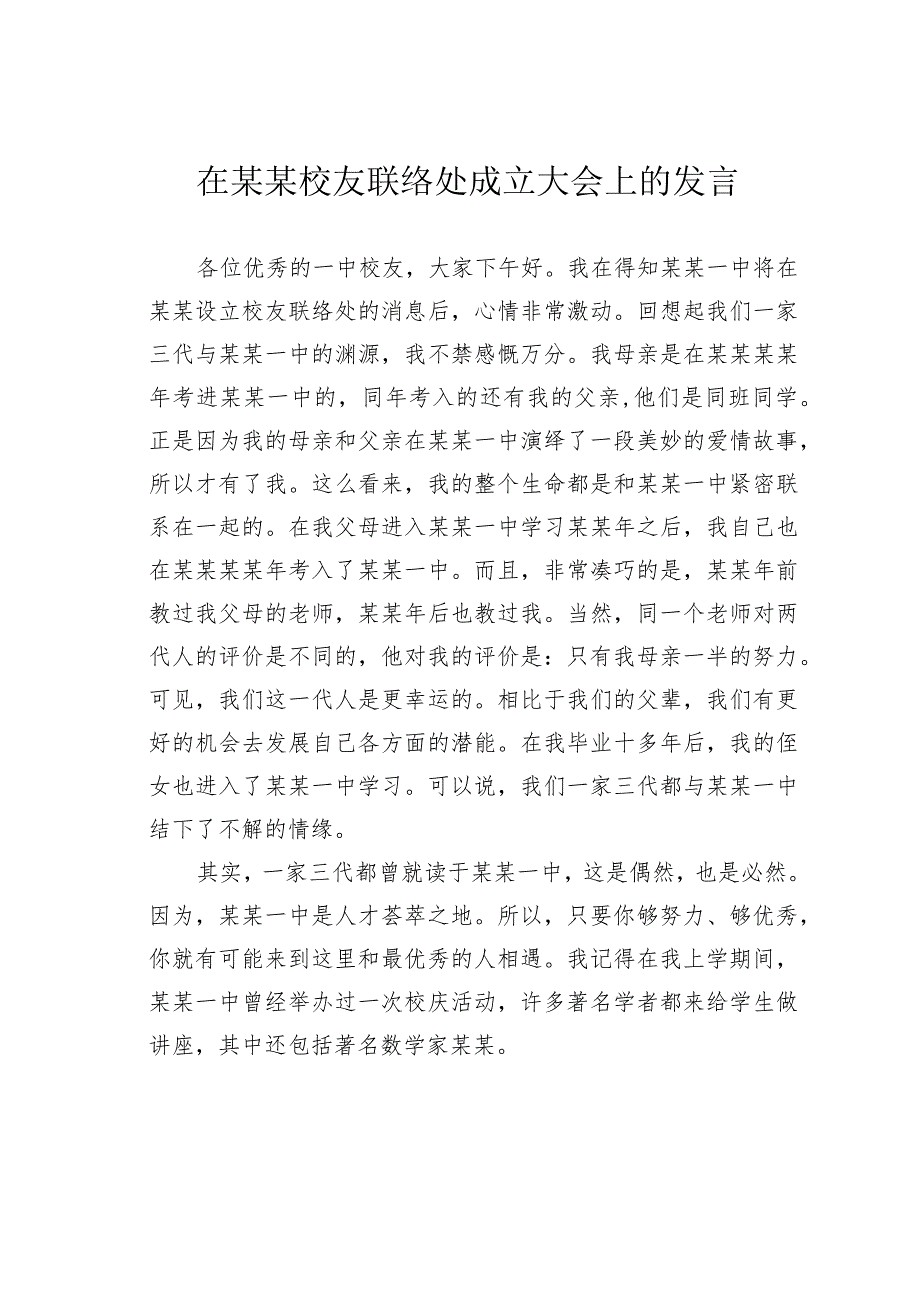 在某某校友联络处成立大会上的发言
各位优秀的一中校友，大家下午好。我在得知某某一中将在
某某设立校友联络处的消息后，心情非常激动。回想起我们一家
三代与某某一中的渊源，我不禁感慨万分。我母亲是在某某某某
年考进某某一中的，同年考入的还有我的父亲,他们是同班同学。
正是因为我的母亲和父亲在某某一中演绎了一段美妙的爱情故事，
所以才有了我。这么看来，我的整个生命都是和某某一中紧密联
系在一起的。在我父母进入某某一中学习某某年之后，我自己也
在某某某某年考入了某某一中。而且，非常凑巧的是，某某年前
教过我父母的老师，某某年后也教过我。当然，同一个老师对两
代人的评价是不同的，他对我的评价是：只有我母亲一半的努力。
可见，我们这一代人是更幸运的。相比于我们的父辈，我们有更
好的机会去发展自己各方面的潜能。在我毕业十多年后，我的侄
女也进入了某某一中学习。可以说，我们一家三代都与某某一中
结下了不解的情缘。
其实，一家三代都曾就读于某某一中，这是偶然，也是必然。
因为，某某一中是人才荟萃之地。所以，只要你够努力、够优秀，
你就有可能来到这里和最优秀的人相遇。我记得在我上学期间，
某某一中曾经举办过一次校庆活动，许多著名学者都来给学生做
讲座，其中还包括著名数学家某某。